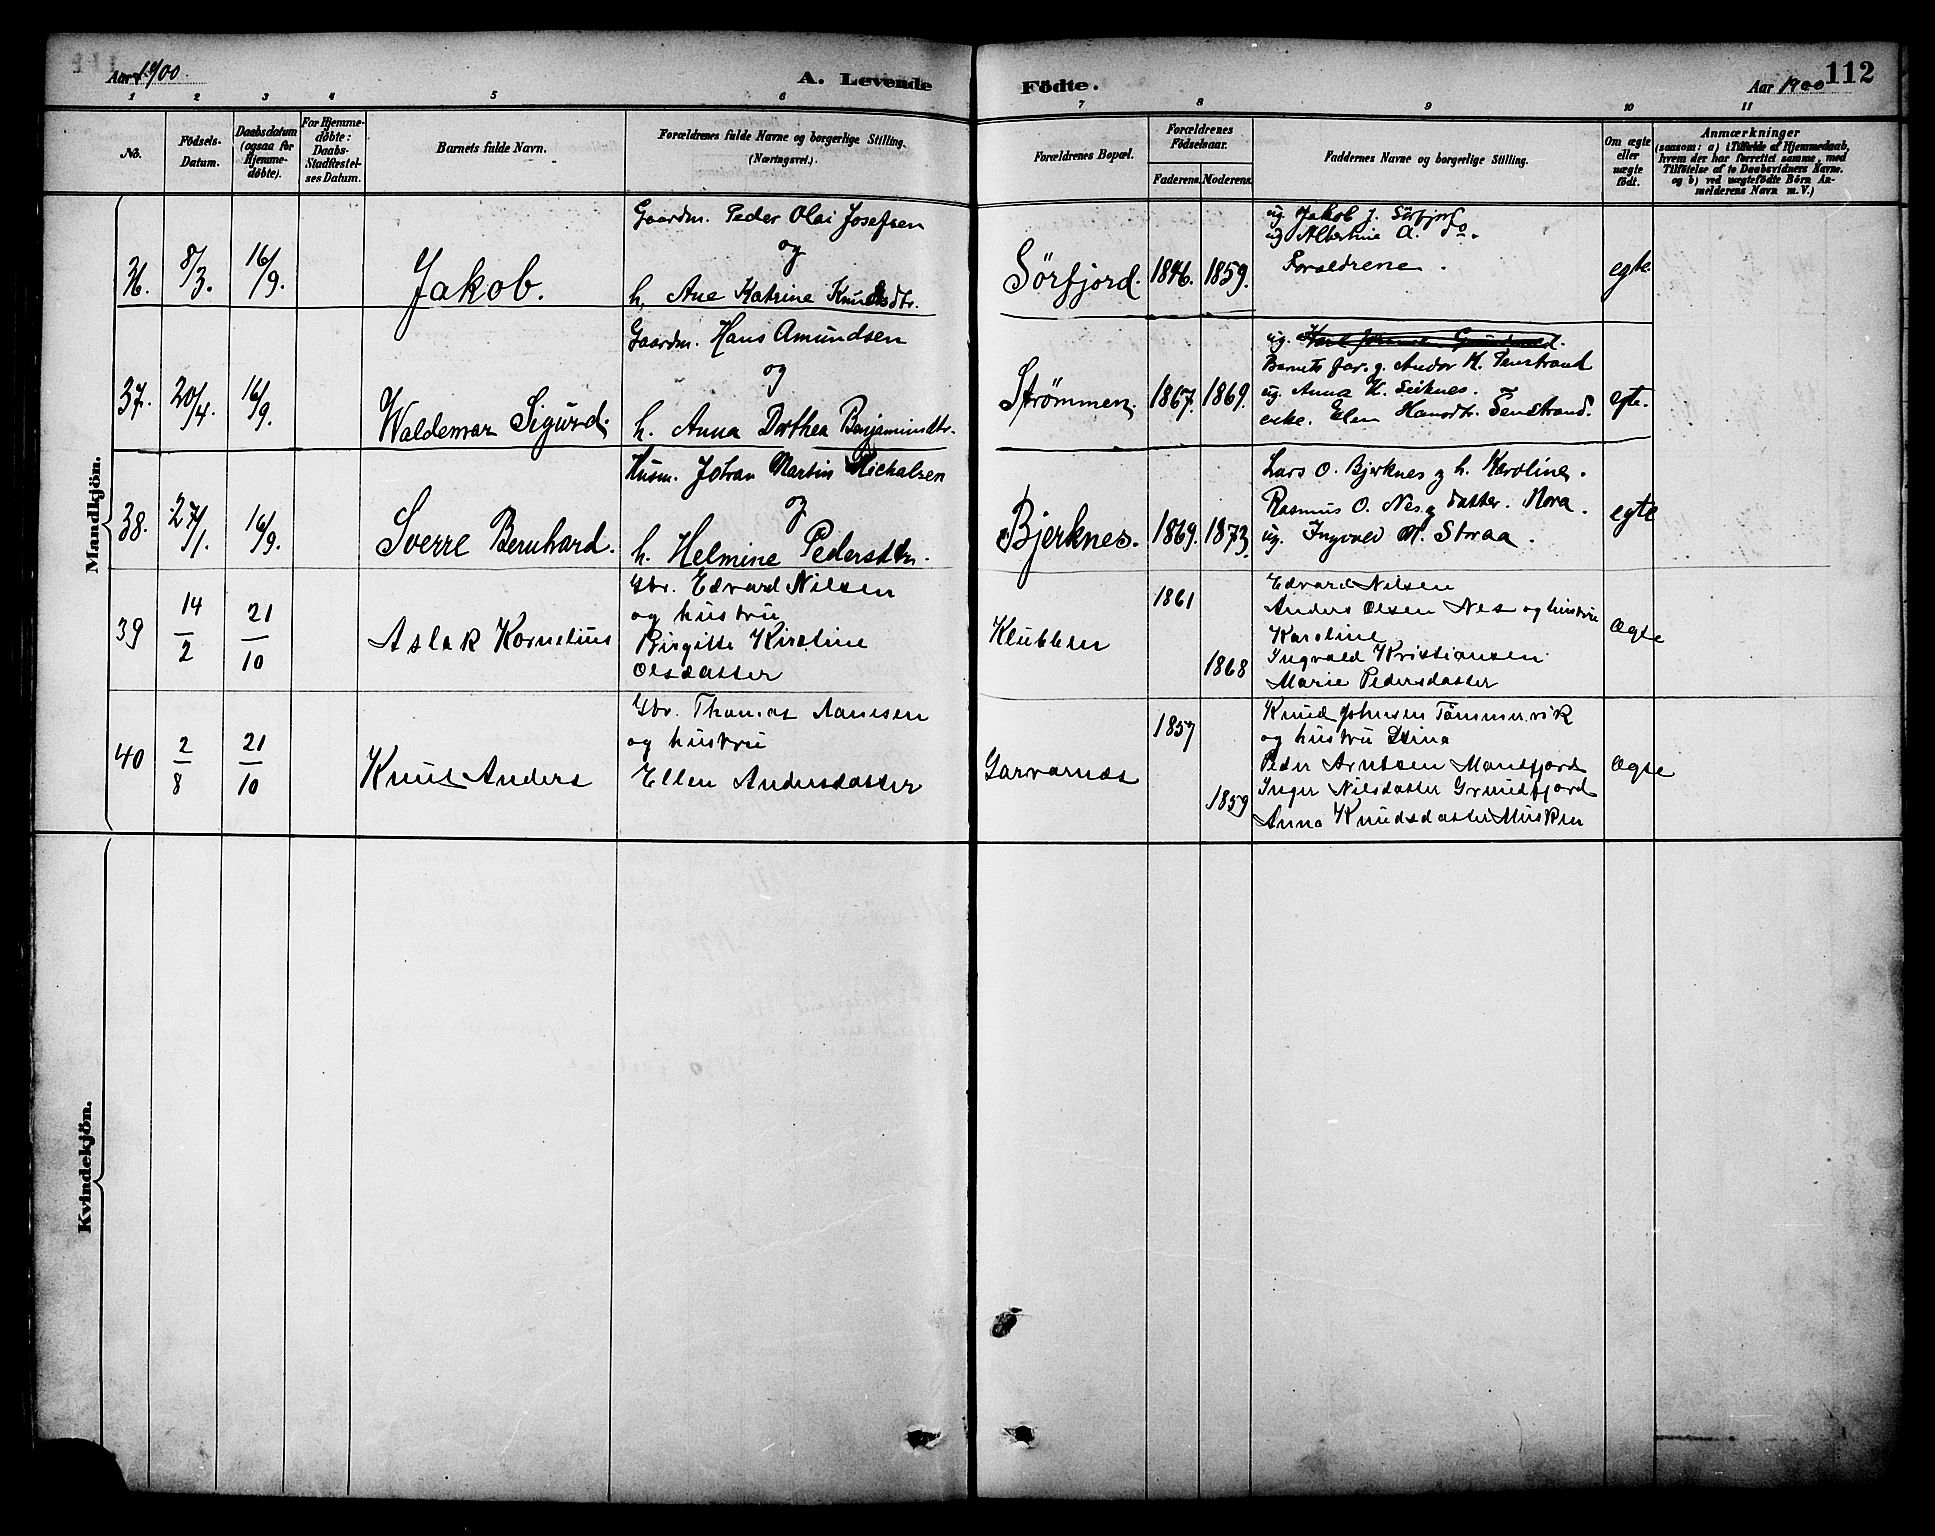 Aar 1900.
A. Levende
1 2 3 4 5 6
No.
Födsels-Datum.
Daabsdatum (ogsaa for Hjemme-döbte).
For Hjemme-döbte: Daabs-Stadfæstel-ses Datum.
Barnets fulde Navn.
Forældrenes fulde Navne og borgerlige Stilling.
(Næringsvei.)
Mandkjön.
36. 8/3. 16/9. Jakob.
Gaardm. Peder Olai Josefsen
og
h. Ane Katrine Knudsdtr.
37. 20/4. 16/9. Waldemar Sigurd.
Gaardm. Hans Amundsen
og
h. Anna Dorthea Benjaminsdtr.
38. 27/1. 16/9. Sverre Bernhard.
Husm. Johan Martin Michalsen
og
h. Helmine Pedersdtr.
39 14/2 21/10 Aslak Kornelius
Gbr. Edvard Nilsen
og hustru
Birgitte Kirstine
Olsdatter
40 2/8 21/10 Knut Anders
Gbr. Thomas
og hustru
Ellen Andersdatter
Kvindekjön.
Födte.
Aar 1900
112
7 8 9 10 11
Forældrenes Bopæl.
Forældrenes Födselsaar.
Faderens. Moderens.
Faddernes Navne og borgerlige Stilling.
Om ægte eller uægte födt.
Anmærkninger
(saasom: a) i Tilfælde af Hjemmedaab,
hvem der har forrettet samme, med
Tilföielse af to Daabsvidners Navne.
og b) ved uægtefödte Börn An-
melderens Navn m. V.)
Sörfjord. 1846. 1859.
ug. Jakob J. Sörfjord
ug Albertine A. do.
Forældrene.
egte.
Strömmen. 1867. 1869.
ug.
Barnets far. g. Andor H. Senstrand
ug. Anna K. Seiknes.
enke. Elen Hansdtr. Senstrand.
egte.
Bjerknes. 1869. 1873.
Lars O. Bjerknes g h. Karoline.
Rasmus O. Nes. g datter. Nora.
ug. Ingvald M. Storaa.
egte
Klubben 1861 1868
Edvard Nilsen
Anders Olsen Nes og hustru
Karoline
Ingvald Kristiansen
Marie Pedersdatter
Ægte
Garvarnæs 1857 1859
Knud Johnsen Tömmervik
og hustru Stina
Peder Arntsen Mandfjord
Inger Nilsdatter Grundfjord
Anna Knudsdatter Musken
Ægte